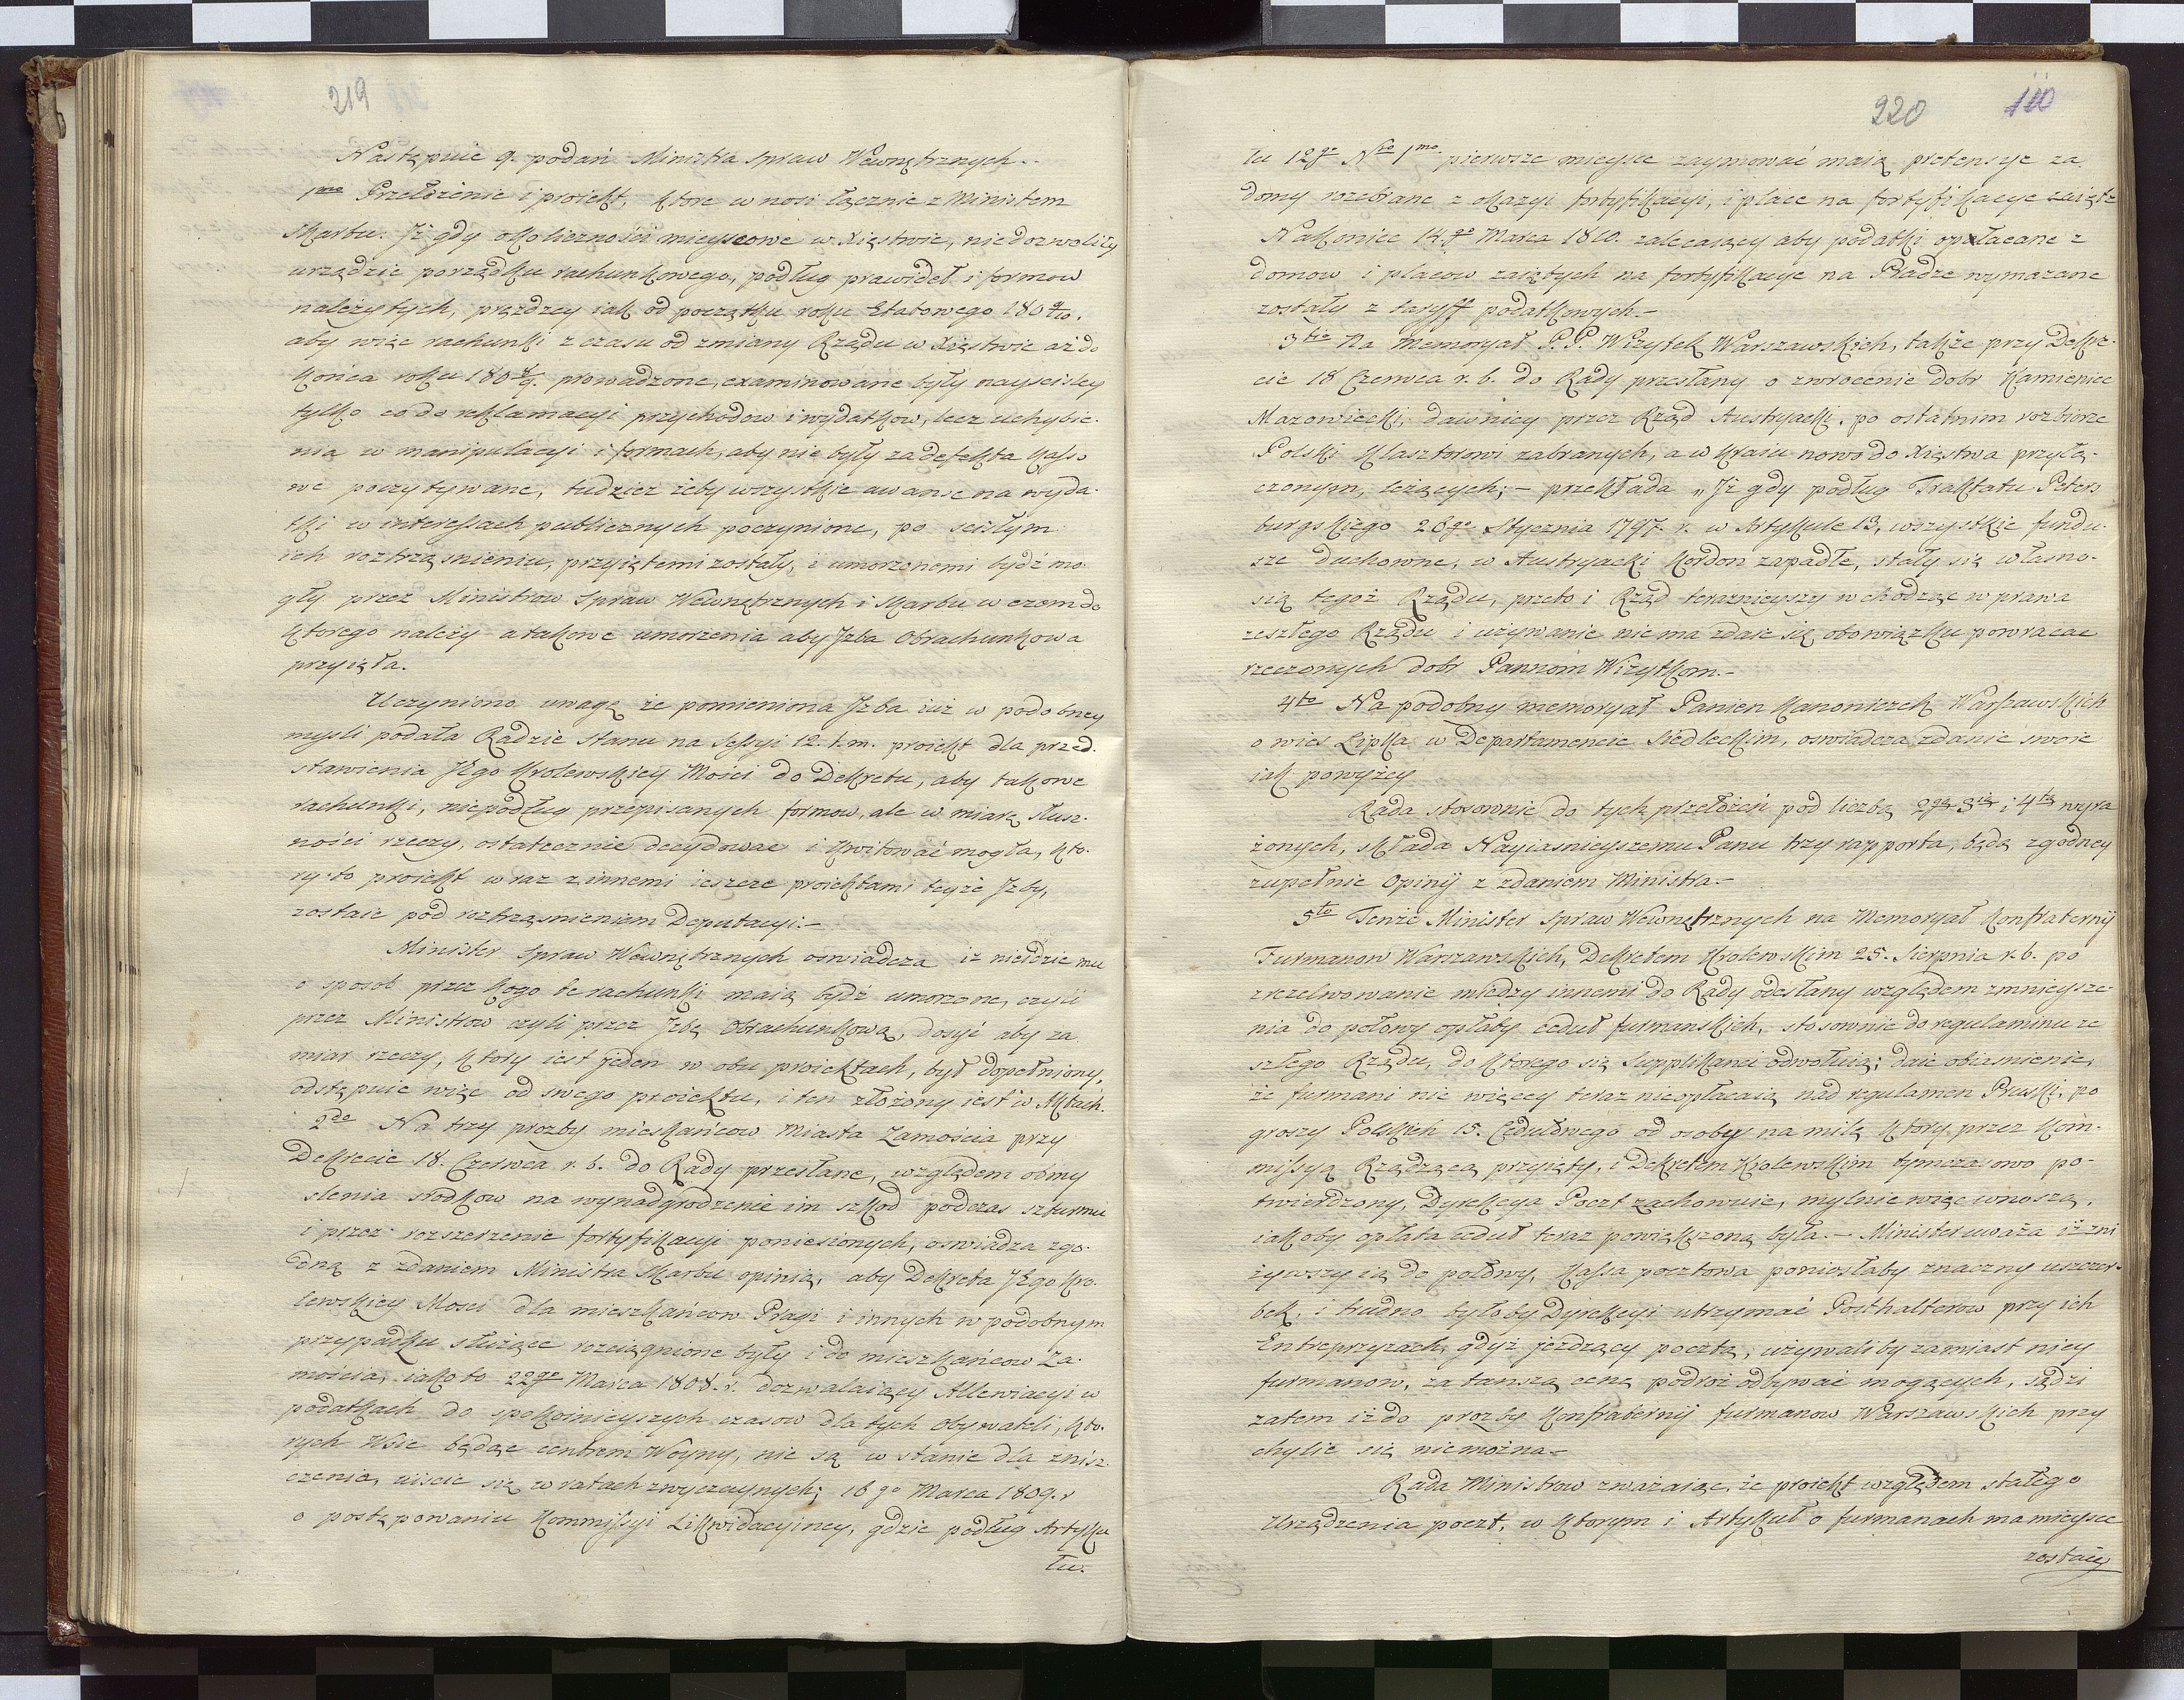 219
Następuie 9. podań Ministra Spraw Wewnętrznych.-
1mo Przełożenie i proiekt, ktore wnosi łącznie z Ministrem
Skarbu. Iż gdy okoliczności mieyscowe w Xięstwie, niedozwoliły
urządzić porządku rachunkowego, podług prawideł i formow
należytych, prędzey iak od początku roku Etatowego 180 9/10.
aby więc rachunki z czasu od zmiany Rządu w Xięstwie aż do
końca roku 180 8/9. prowadzone, examinowane były nayściśley
tylko co do reklamacyi przychodow i wydatkow, lecz uchybie-
nia w manipulacyi i formach, aby nie były za defekta kasso
we poczytywane, tudzież żeby wszystkie awanse na wyda-
tki w interessach publicznych poczynione, po ścisłym
ich roztrząśnieniu, przyiętemi zostały, i umorzonemi bydź mo-
gły przez Ministrow Spraw Wewnętrznych i Skarbu w czem do
ktorego należy a takowe umorzenia aby Izba Obrachunkowa
przyięła.
Uczyniono uwagę że pomieniona Izba iuż w podobney
myśli podała Radzie Stanu na Sessyi 12. t. m. proiekt dla przed-
stawienia JKgo Krolewskiey Mości do Dekretu, aby takowe
rachunki, niepodług przepisanych formow, ale w miarę słusz-
ności rzeczy, ostatecznie decydować i kwitować mogła, kto-
ry-to proiekt wraz z innemi ieszcze proiektami teyże Izby,
zostaie pod roztrząśnieniem Deputacyi.-
Minister Spraw Wewnętrznych oswiadcza iż nieidzie mu
o sposob przez kogo te rachunki maią bydź umorzone, czyli
przez Ministrow czyli przez Izbę Obrachunkową, dosyć aby za
miar rzeczy, ktory iest jeden w obu proiektach, był dopełniony,
odstępuie więc od swego proiektu, i ten złożony iest w Aktach.
2do Na trzy prozby mieskańcow Miasta Zamościa przy
Dekrecie 18. Czerwca r. b. do Rady przesłane, względem obmy
slenia srodkow na wynadgrodzenie im szkod podczas szturmu
i przez rozszerzenie fortyfikacyi poniesionych, oswiadza zgo-
dną z zdaniem Ministra Skarbu opinią, aby Dekreta JKgo Kro-
lewskiey Mosci dla mieszkańcow Pragi i innych w podobnym
przypadku służące rozciągnione były i do mieszkańcow Za-
mościa, iako to 22go Marca 1808. r. dozwalaiący Allewiacyi w
podatkach do spokoinieyszych czasow dla tych Obywateli, kto-
rych Wsie będąc centrem Woyny, nie są w stanie dla znisz-
czenia, uiscić się w ratach zwyczaynych; 16go Marca 1809. r
o postępowaniu Kommissyi Likwidacyiney, gdzie podług Artyku
łu.
220
110
łu 12go Nro 1mo pierwsze mieysce zaymować maią pretensye za
domy rozebrane z okazyi fortyfikacyi, i place na fortyfikacye zaięte
Nakoniec 14go Marca 1810. zalecaiący aby podatki opłacane z
domow i placow zaiętych na fortyfikacye na Pradze wymazane
zostały z taryff podatkowych.-
3tio Na Memoryał P.P. Wizytek Warszawskich, także przy Dekre-
cie 18 Czerwca r. b. do Rady przesłany o zwrocenie dobr Kamieniec
Mazowiecki, dawniey przez Rząd Austryacki, po ostatnim rozbiorze
Polski Klasztorowi zabranych, a w Kraiu nowo do Xięstwa przyłą-
czonym, leżących; - przekłada „Iż gdy podług Traktatu Peters
burgskiego 28go Stycznia 1797. r. w Artykule 13, wszystkie fundu-
sze Duchowne, w Austryacki kordon zapadłe, stały się własno-
sią tegoż Rządu, przeto i Rząd teraznieyszy wchodząc w prawa
zeszłego Rządu i używanie nie ma zdaie się obowiązku powracac
rzeczonych dobr Pannom Wizytkom.-
4to Na podobny memoryał Panien Kanoniczek Warszawskich
o wies Lipka w Departamencie Siedleckim, oswiadcza zdanie swoie
iak powyżey
Rada stosownie do tych przełożeń pod liczbą 2gą 3cią i 4tą wyra
żonych, składa Nayiasnieyszemu Panu trzy rapporta, będą zgodney
zupełnie Opinij z zdaniem Ministra.-
5to Tenże Minister Spraw Wewnętrznych na Memoryał Konfraternij
Furmanow Warszawskich, Dekretem Krolewskim 25. Sierpnia r. b. po
zrezolwowanie miedzy innemi do Rady odesłany względem zmnieysze-
nia do połowy opłaty ceduł furmanskich, stosownie do regulaminu ze
szłego Rządu, do ktorego się Supplikanci odwołuią; daie obiasnienie,
że furmani nie więcey teraz nieopłacaią nad regulamen Pruski, po
groszy Polskich 15. Cedułowego od osoby na milę ktory przez Kom-
missyą Rządzącą przyięty, i Dekretem Krolewskim tymczasowo po-
twierdzony, Dyrekcya Poczt zachowuie, mylnie więc wnoszą,
iakoby opłata cedul teraz powiększoną była.- Minister uważa iż zni
żywszy ią do połowy, Kassa pocztowa poniosłaby znaczny uszczer-
bek, i trudno byłoby Dyrekcyi utrzymać Posthalterow przy ich
Entreprzyzach, gdyż jeżdzący pocztą, używaliby zamiast niey
furmanow, za tanszą cenę podroż odbywać mogących, sądzi
zatem iż do prozby Konfraternij furmanow Warszawskich przy
chylic się niemożna.-
Rada Ministrow zważaiąc, że proiekt względem stałego
Urządzenia poczt, w ktorym i Artykuł o furmanach ma mieysce
zostaiy